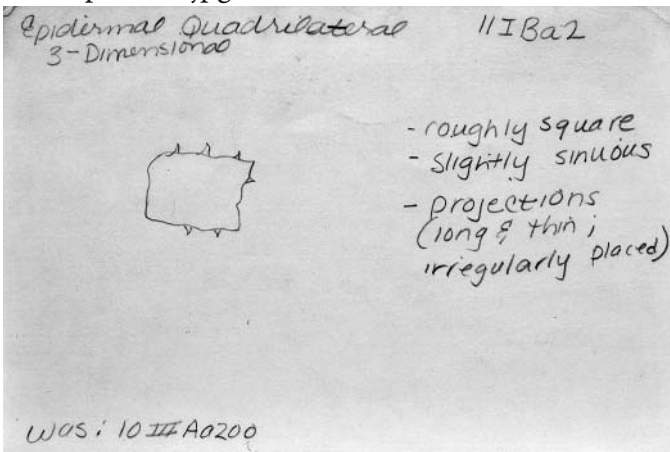 Epidermal Quadrilateral 11IBa2
3-Dimensional
- roughly square
- slightly sinuous
- projections
(long & thin;
irregularly placed)
was: 10IIIAa200